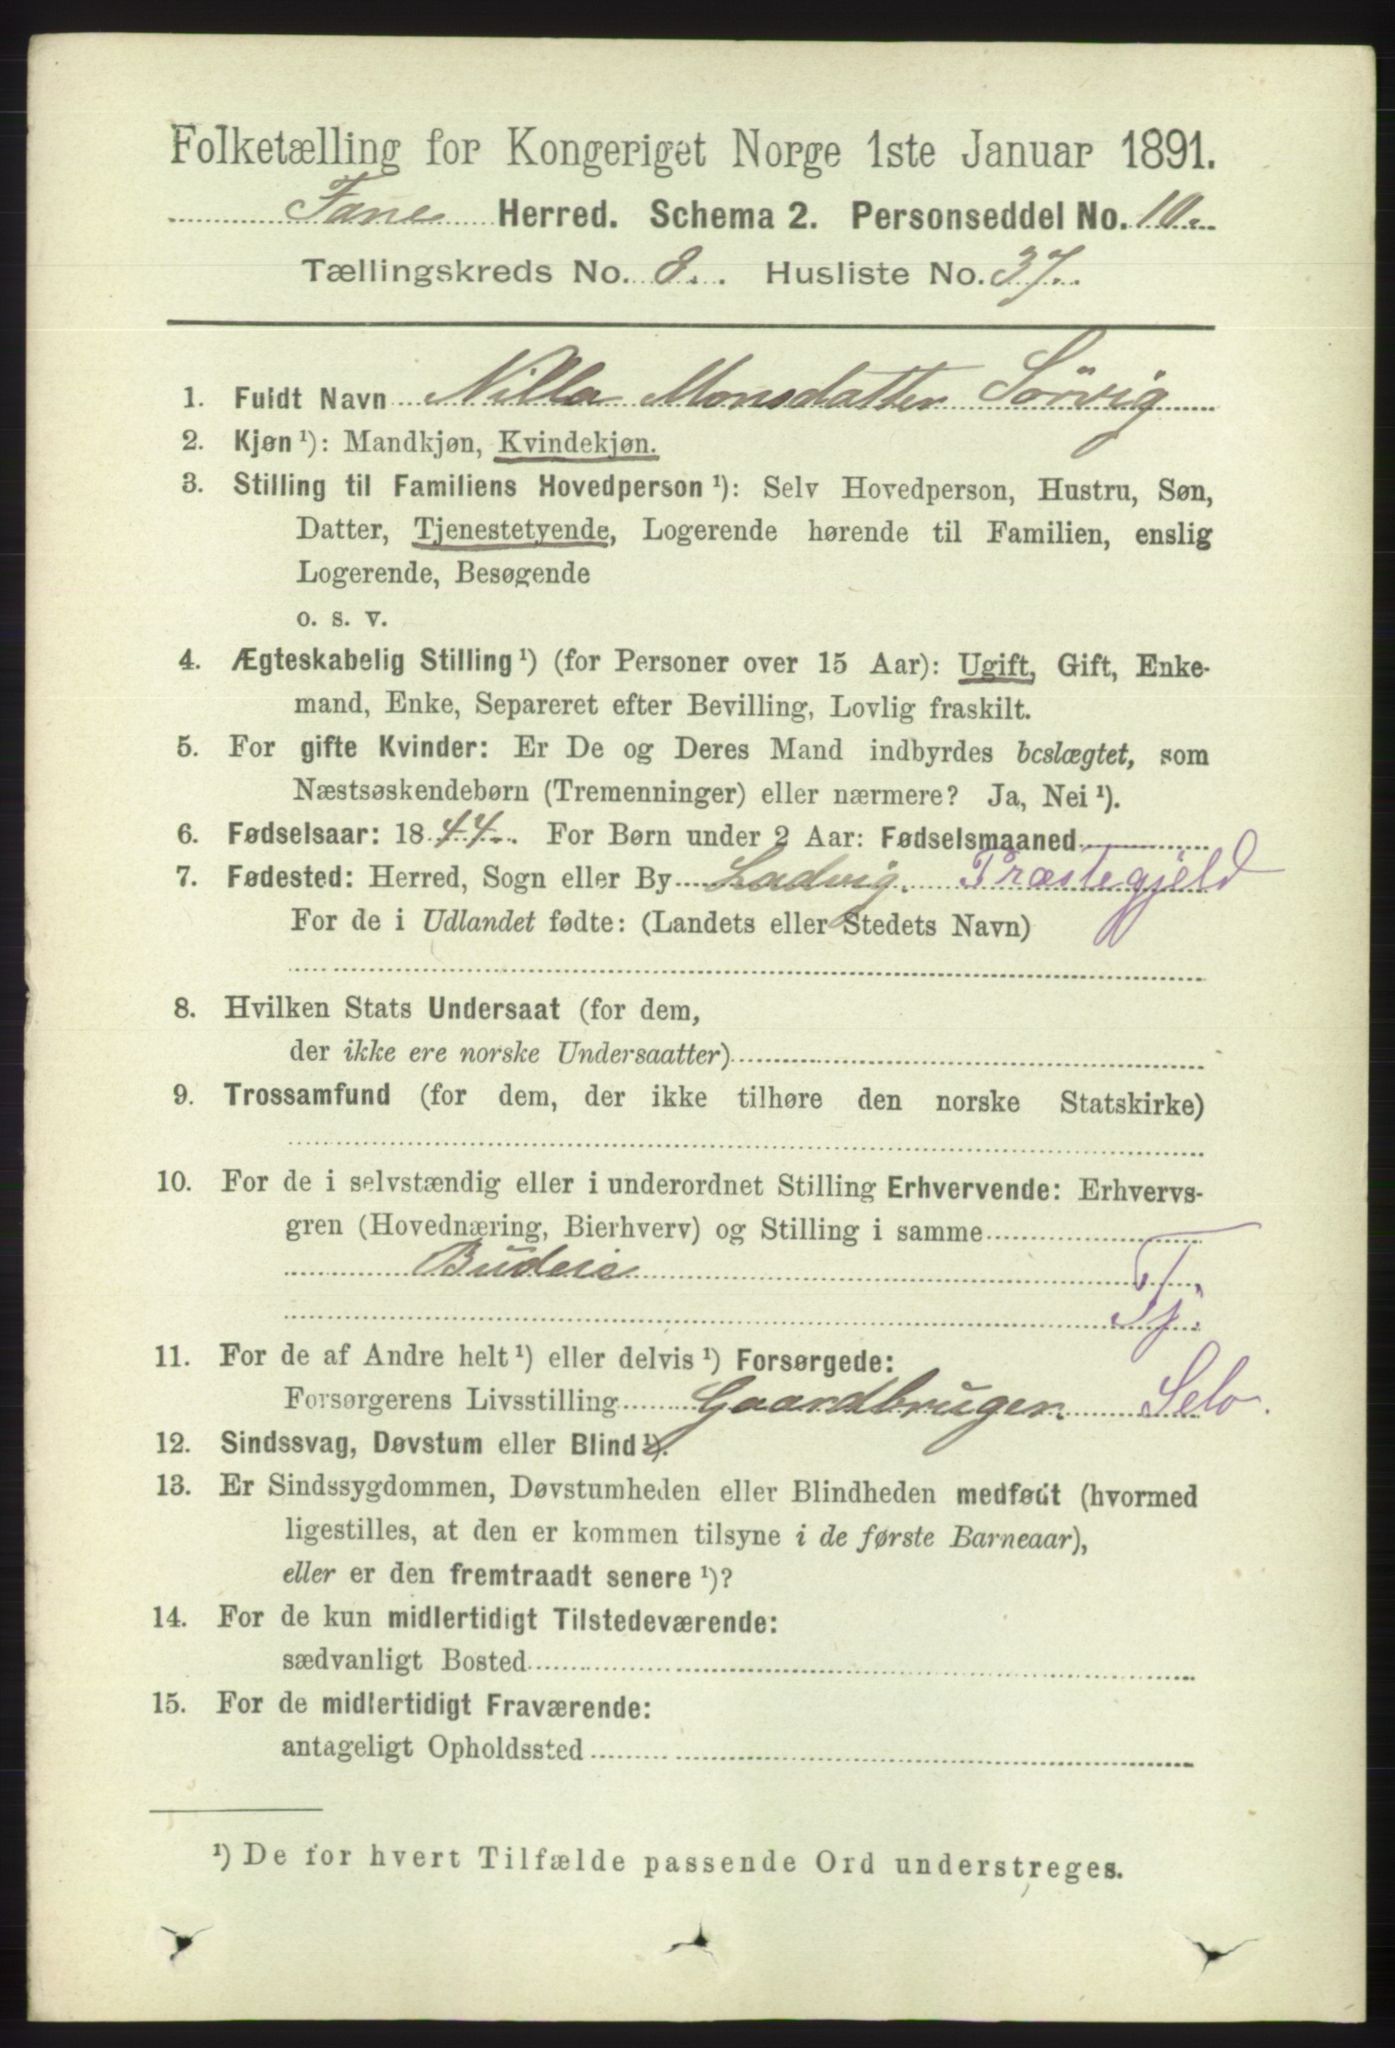 Folketælling for Kongeriget Norge 1ste Januar 1891.
Fane Herred. Schema 2. Personseddel No. 10.
Tællingskreds No. 8. Husliste No. 37.
1. Fuldt Navn Nilla Monsdatter Sörvig
2. Kjøn ¹): Mandkjøn, Kvindekjøn.
3. Stilling til Familiens Hovedperson ¹): Selv Hovedperson, Hustru, Søn,
Datter, Tjenestetyende, Logerende hørende til Familien, enslig
Logerende, Besøgende
o. s. v.
4. Ægteskabelig Stilling ¹) (for Personer over 15 Aar): Ugift, Gift, Enke-
mand, Enke, Separeret efter Bevilling, Lovlig fraskilt.
5. For gifte Kvinder: Er De og Deres Mand indbyrdes beslægtet, som
Næstsøskendebørn (Tremenninger) eller nærmere? Ja, Nei ¹).
6. Fødselsaar: 1844. For Børn under 2 Aar: Fødselsmaaned
7. Fødested: Herred, Sogn eller By Ladvig. Præstegjeld
For de i Udlandet fødte: (Landets eller Stedets Navn)
8. Hvilken Stats Undersaat (for dem,
der ikke ere norske Undersaatter)
9. Trossamfund (for dem, der ikke tilhøre den norske Statskirke)
10. For de i selvstændig eller i underordnet Stilling Erhvervende: Erhvervs-
gren (Hovednæring, Bierhverv) og Stilling i samme
Budeie
Tj.
11. For de af Andre helt ¹) eller delvis ¹) Forsørgede:
Forsørgerens Livsstilling Gaardbruger. Selv.
12. Sindssvag, Døvstum eller Blind ¹).
13. Er Sindssygdommen, Døvstumheden eller Blindheden medfødt (hvormed
ligestilles, at den er kommen tilsyne i de første Barneaar),
eller er den fremtraadt senere ¹)?
14. For de kun midlertidigt Tilstedeværende:
sædvanligt Bosted
15. For de midlertidigt Fraværende:
antageligt Opholdssted
¹) De for hvert Tilfælde passende Ord understreges.